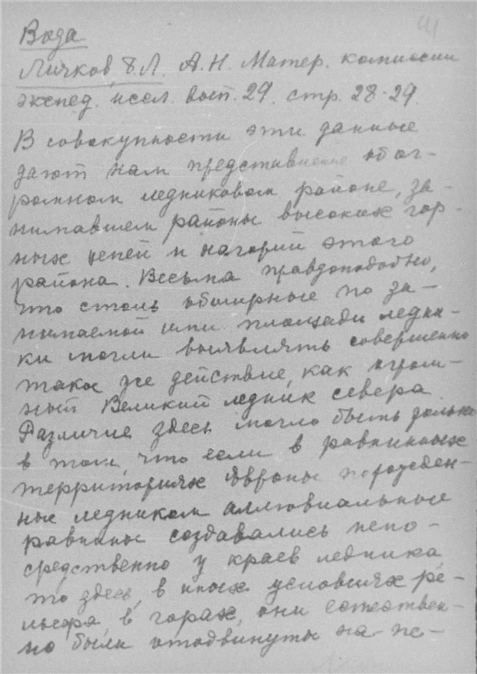 Вода
Личков, Б.Л. А.Н. Матер. комиссии
экспед. иссл. вып. 29. стр. 28-29.
В совокупности эти данные
дают нам представление об ог-
ромном ледниковом районе, за-
нимавшем районы высоких гор-
ных цепей и нагорий этого
района. Весьма правдоподобно,
что столь обширные по за-
нимаемой ими площади ледни-
ки могли выявлять совершенно
такое же действие, как огром-
ный Великий ледник севера.
Различие здесь могло быть только
в том, что если в равнинных
территориях Европы порожден-
ные ледником аллювиальные
равнины создавались непо-
средственно у краев ледника
то здесь, в иных условиях ре-
льефа в горах, они естествен-
но были отодвинуты на не-